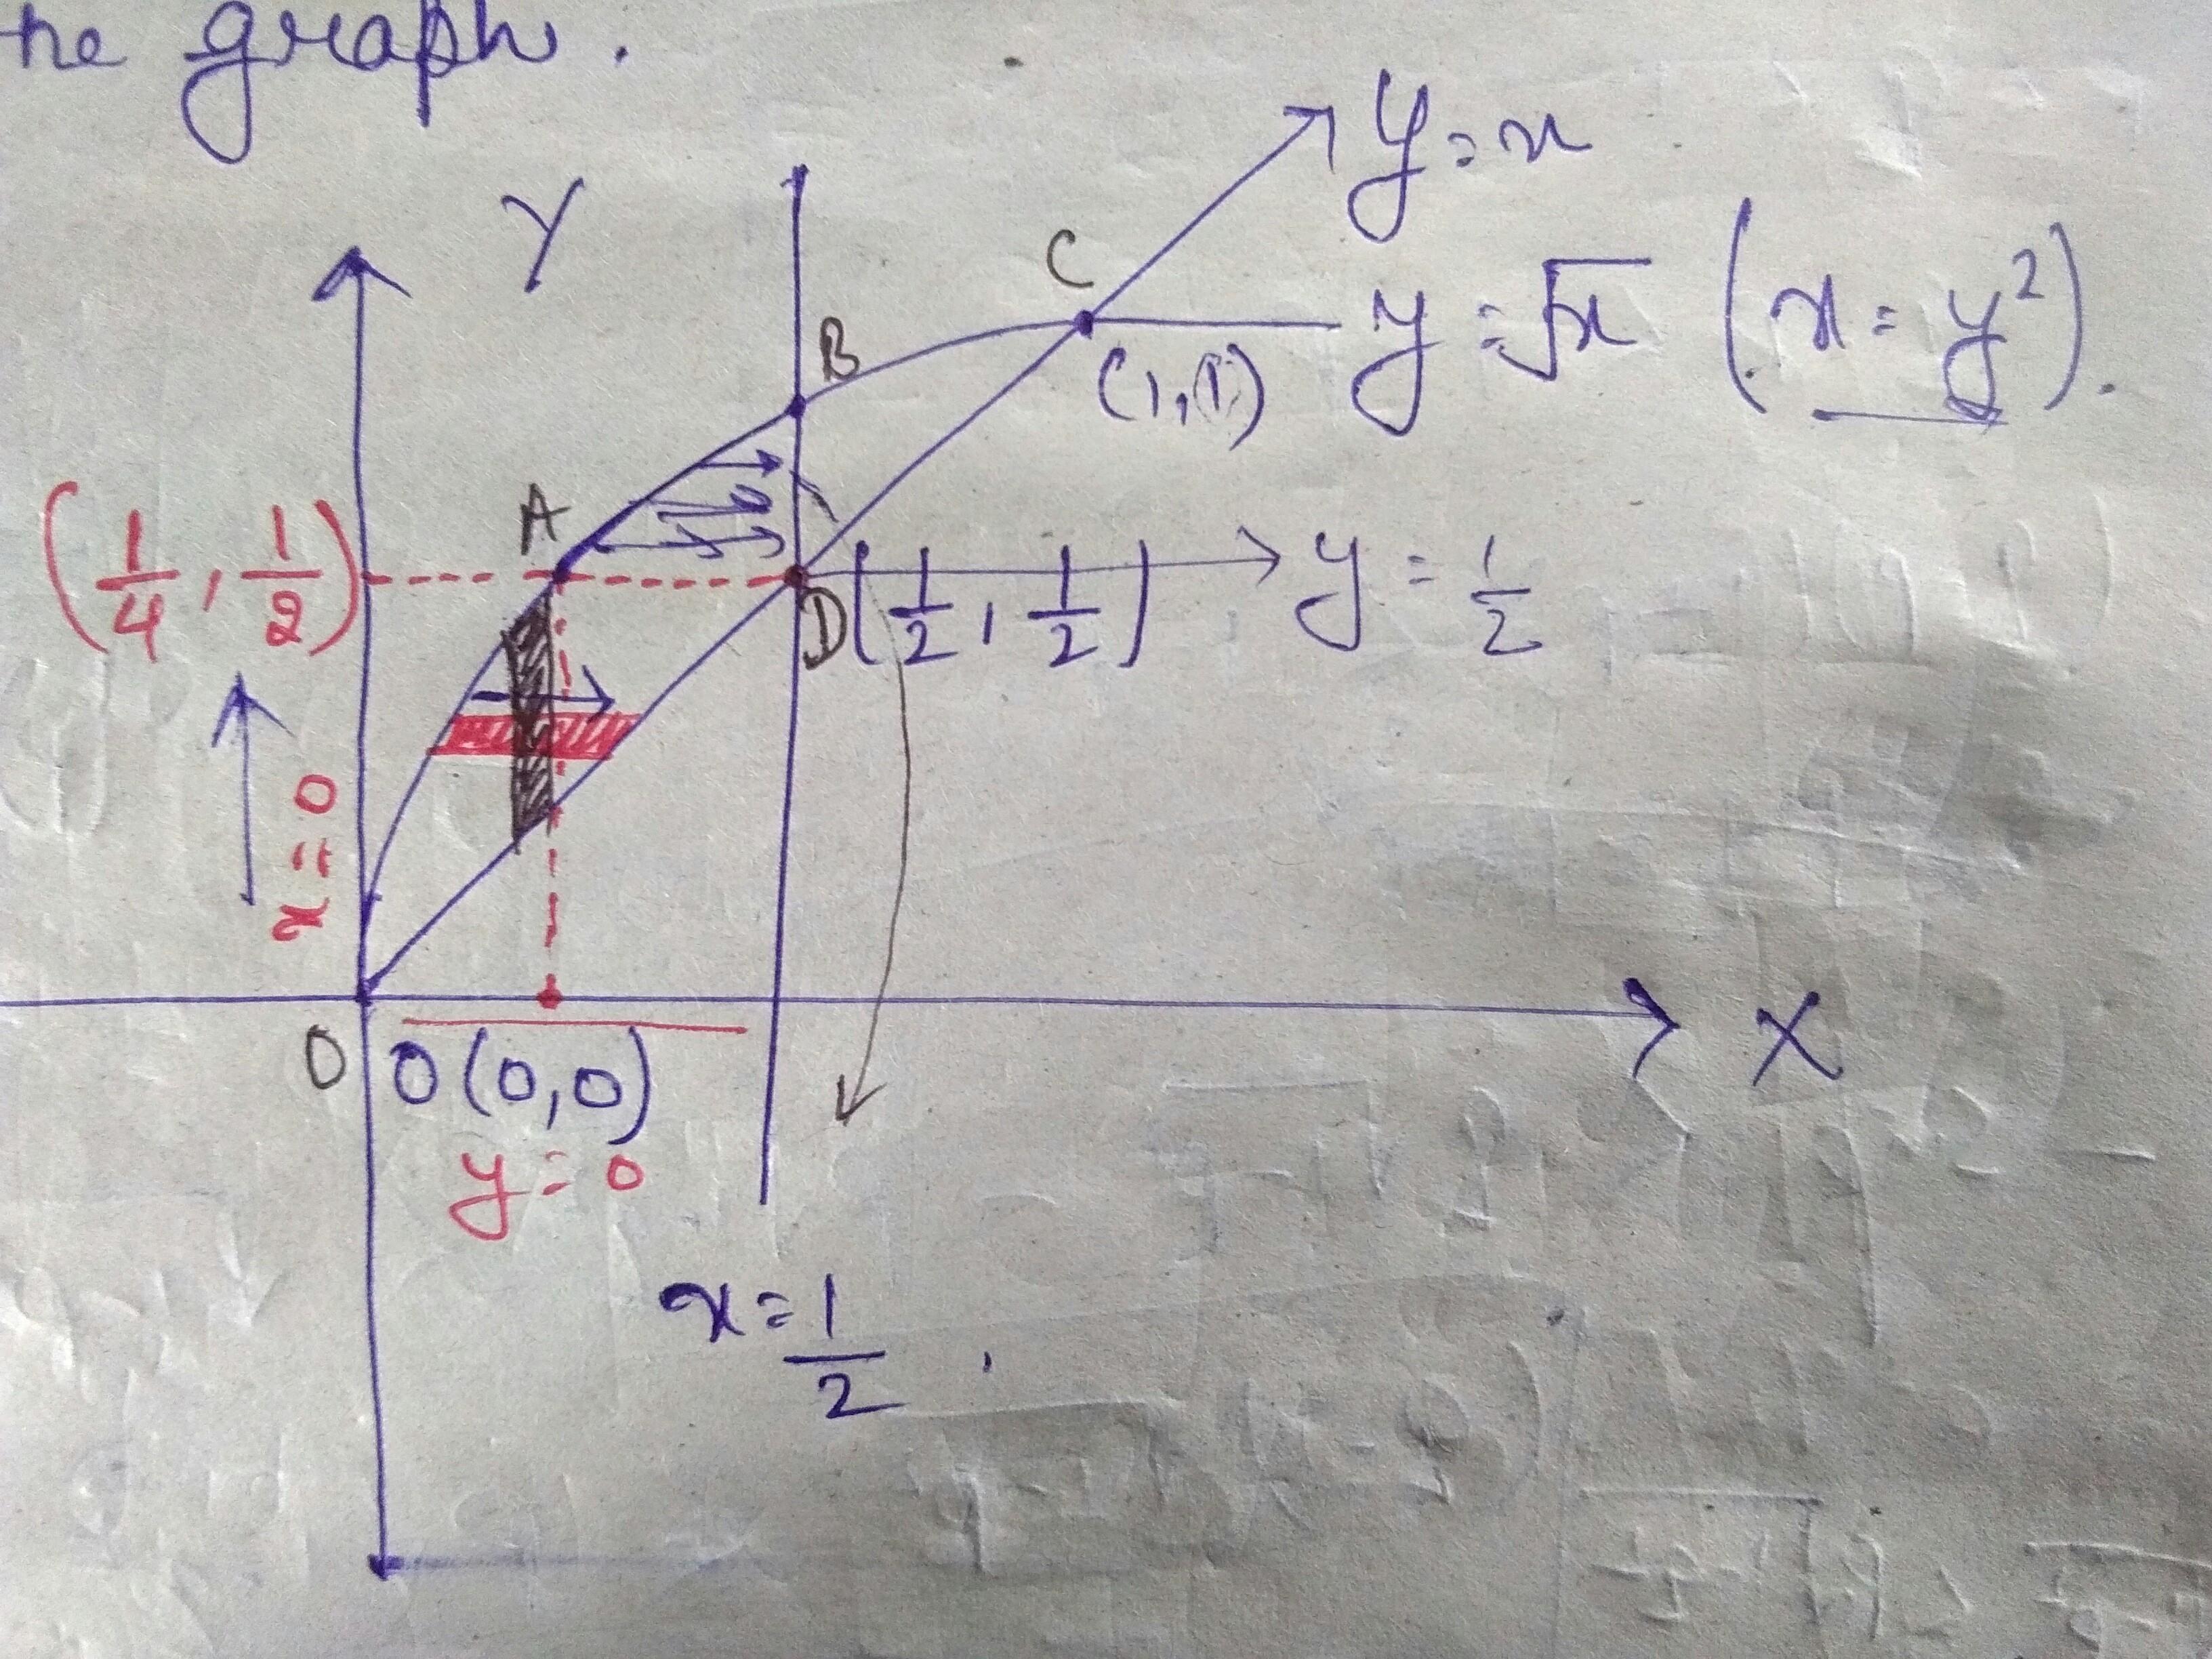 he graph.
Y
y=x
C
y=√x (x=y²).
(1,1)
B
A
(1/4, 1/2)
D(1/2, 1/2)
y=1/2
x=0
X
O
O(0,0)
y=0
x=1/2.